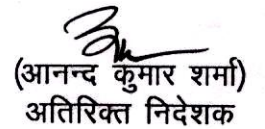 (आनन्द कुमार शर्मा)
अतिरिक्त निदेशक